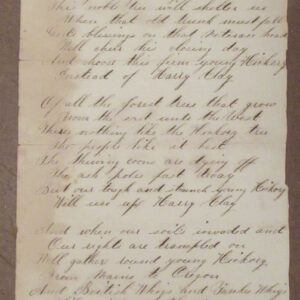 This noble tree will shelter us
When that old trunk must fall
Gods blessings on that veteran head
Will cheer his closing day
And choose this firm young Hickory
Instead of Harry Clay
Of all the forest trees that grow
From the east unto the West
Theres nothing like the Hickory tree
The people like it best
The thriving coons are dying off
The ash poles fast decay
But our tough and staunch young Hickory
Will use up Harry Clay
And when our soils invaded and
Our rights are trampled on
Will gather round young Hickory
From Maine to Oregon
And British Whigs and Yankee Whigs